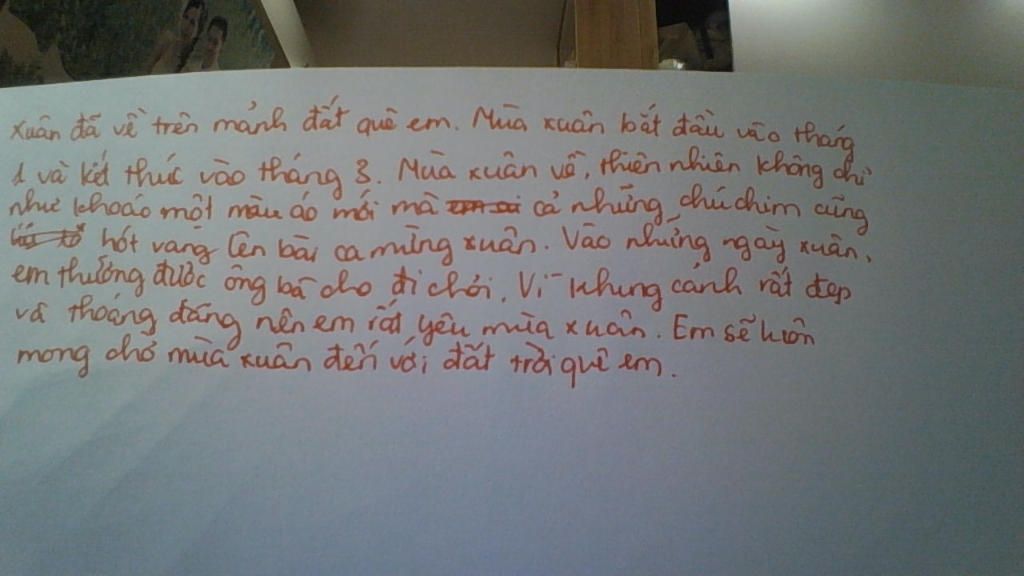 Xuân đã về trên mảnh đất quê em. Mùa xuân bắt đầu vào tháng
1 và kết thúc vào tháng 3. Mùa xuân về, thiên nhiên không chỉ
như khoác một màu áo mới mà cả những chú chim cũng
hót vang lên bài ca mừng xuân. Vào những ngày xuân,
em thường được ông bà cho đi chơi. Vì khung cảnh rất đẹp
và thoáng đãng nên em rất yêu mùa xuân. Em sẽ luôn
mong chờ mùa xuân đến với đất trời quê em.